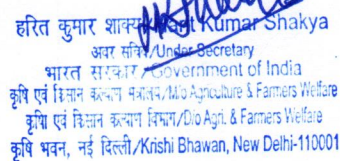 हरित कुमार शाक्य/Harit Kumar Shakya
अवर सचिव/Under Secretary
भारत सरकार/Government of India
कृषि एवं किसान कल्याण मंत्रालय/M/o Agriculture & Farmers Welfare
कृषि एवं किसान कल्याण विभाग/D/o Agri. & Farmers Welfare
कृषि भवन, नई दिल्ली/Krishi Bhawan, New Delhi-110001